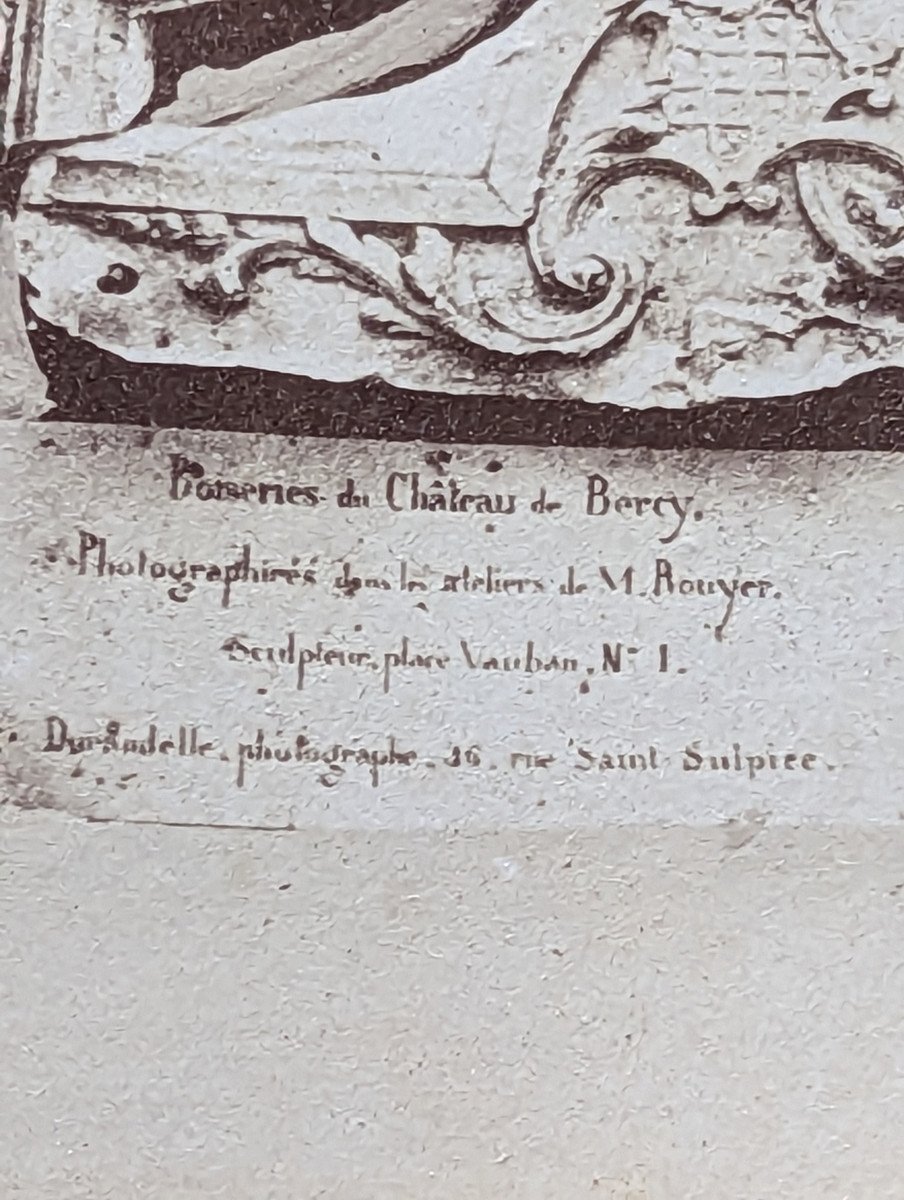 Boiseries du Château de Bercy.
Photographiées dans les ateliers de M. Rouyer.
Sculpteur, place Vauban, N° 1.
Durandelle, photographe, 46, rue Saint Sulpice.